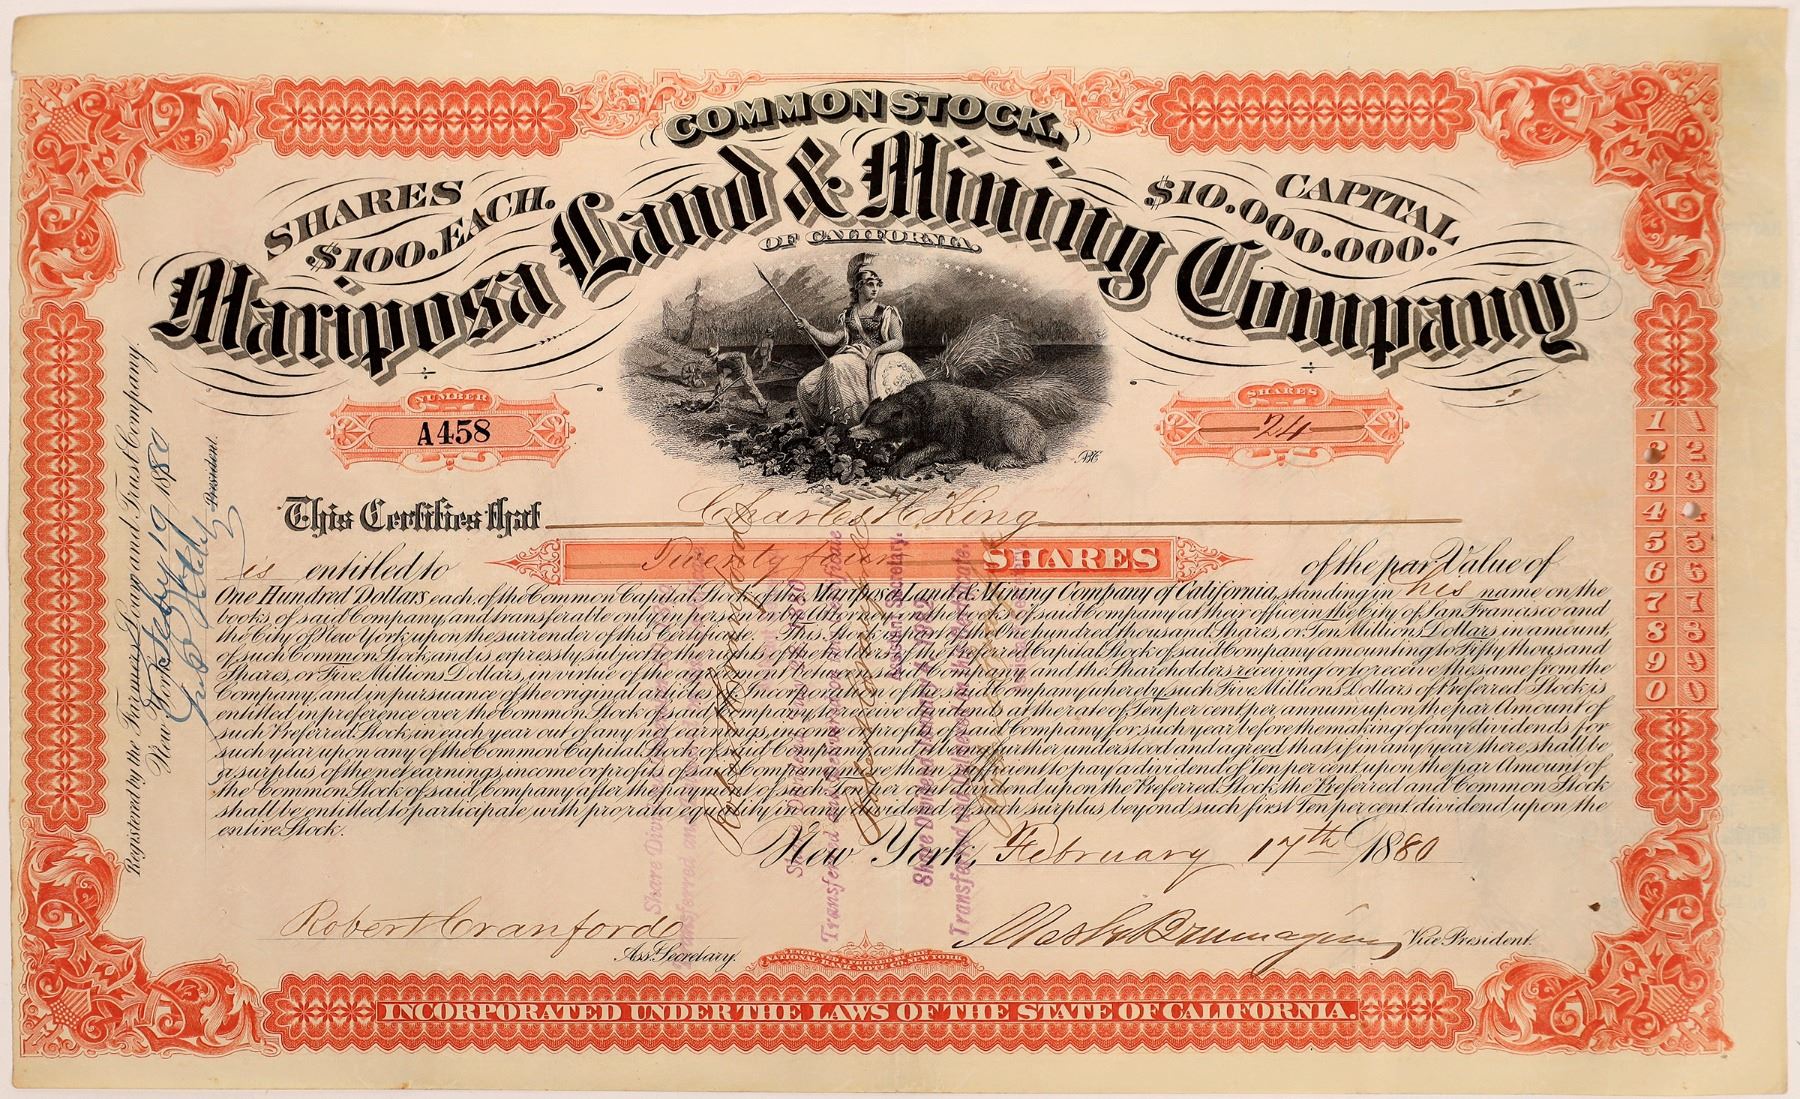 COMMON STOCK.
SHARES
$100. EACH.
CAPITAL
$10.000.000.
Mariposa Land & Mining Company
OF CALIFORNIA.
NUMBER
A458
SHARES
24
This Certifies that Charles H. King
is entitled to Twenty four SHARES of the par Value of
One Hundred Dollars, each, of the Common Capital Stock, of the Mariposa Land & Mining Company of California, standing in his name on the
books of said Company, and transferable only in person or by Attorney on the books of said Company at their office in the City of San Francisco and
the City of New York upon the surrender of this Certificate. This Stock is part of the One hundred thousand Shares, or Ten Millions Dollars, in amount,
of such Common Stock, and is expressly subject to the rights of the holders of the Preferred Capital Stock of said Company amounting to Fifty thousand
Shares, or Five Millions Dollars, in virtue of the agreement between the Company and the Shareholders receiving or to receive the same from the
Company, and in pursuance of the original articles of Incorporation of the said Company whereby such Five Millions Dollars of Preferred Stock is
entitled in preference over the Common Stock of said Company, to receive dividends at the rate of Ten per cent per annum upon the par Amount of
such Preferred Stock, in each year out of any net earnings, income or profits of said Company, for such year before the making of any dividends for
such year upon any of the Common Capital Stock of said Company and it being further understood and agreed that if in any year there shall be
a surplus of the net earnings, income or profits of said Company more than sufficient to pay a dividend of Ten per cent upon the par Amount of
the Common Stock of said Company after the payment of such Ten per cent dividend upon the Preferred Stock, the Preferred and Common Stock
shall be entitled to participate with pro rata equality in any dividend of such surplus beyond such first Ten per cent dividend upon the
entire Stock.
New York, February 17th 1880
Robert Cranford
Ass. Secretary.
Vice President.
NATIONAL BANK NOTE CO. NEW YORK
INCORPORATED UNDER THE LAWS OF THE STATE OF CALIFORNIA.
Registered by the Farmers Loan and Trust Company.
New York Feby 19 1880
President.
Robert Cranford
Assistant Secretary.
1 1
2 2
3 3
4 4
5 5
6 6
7 7
8 8
9 9
0 0